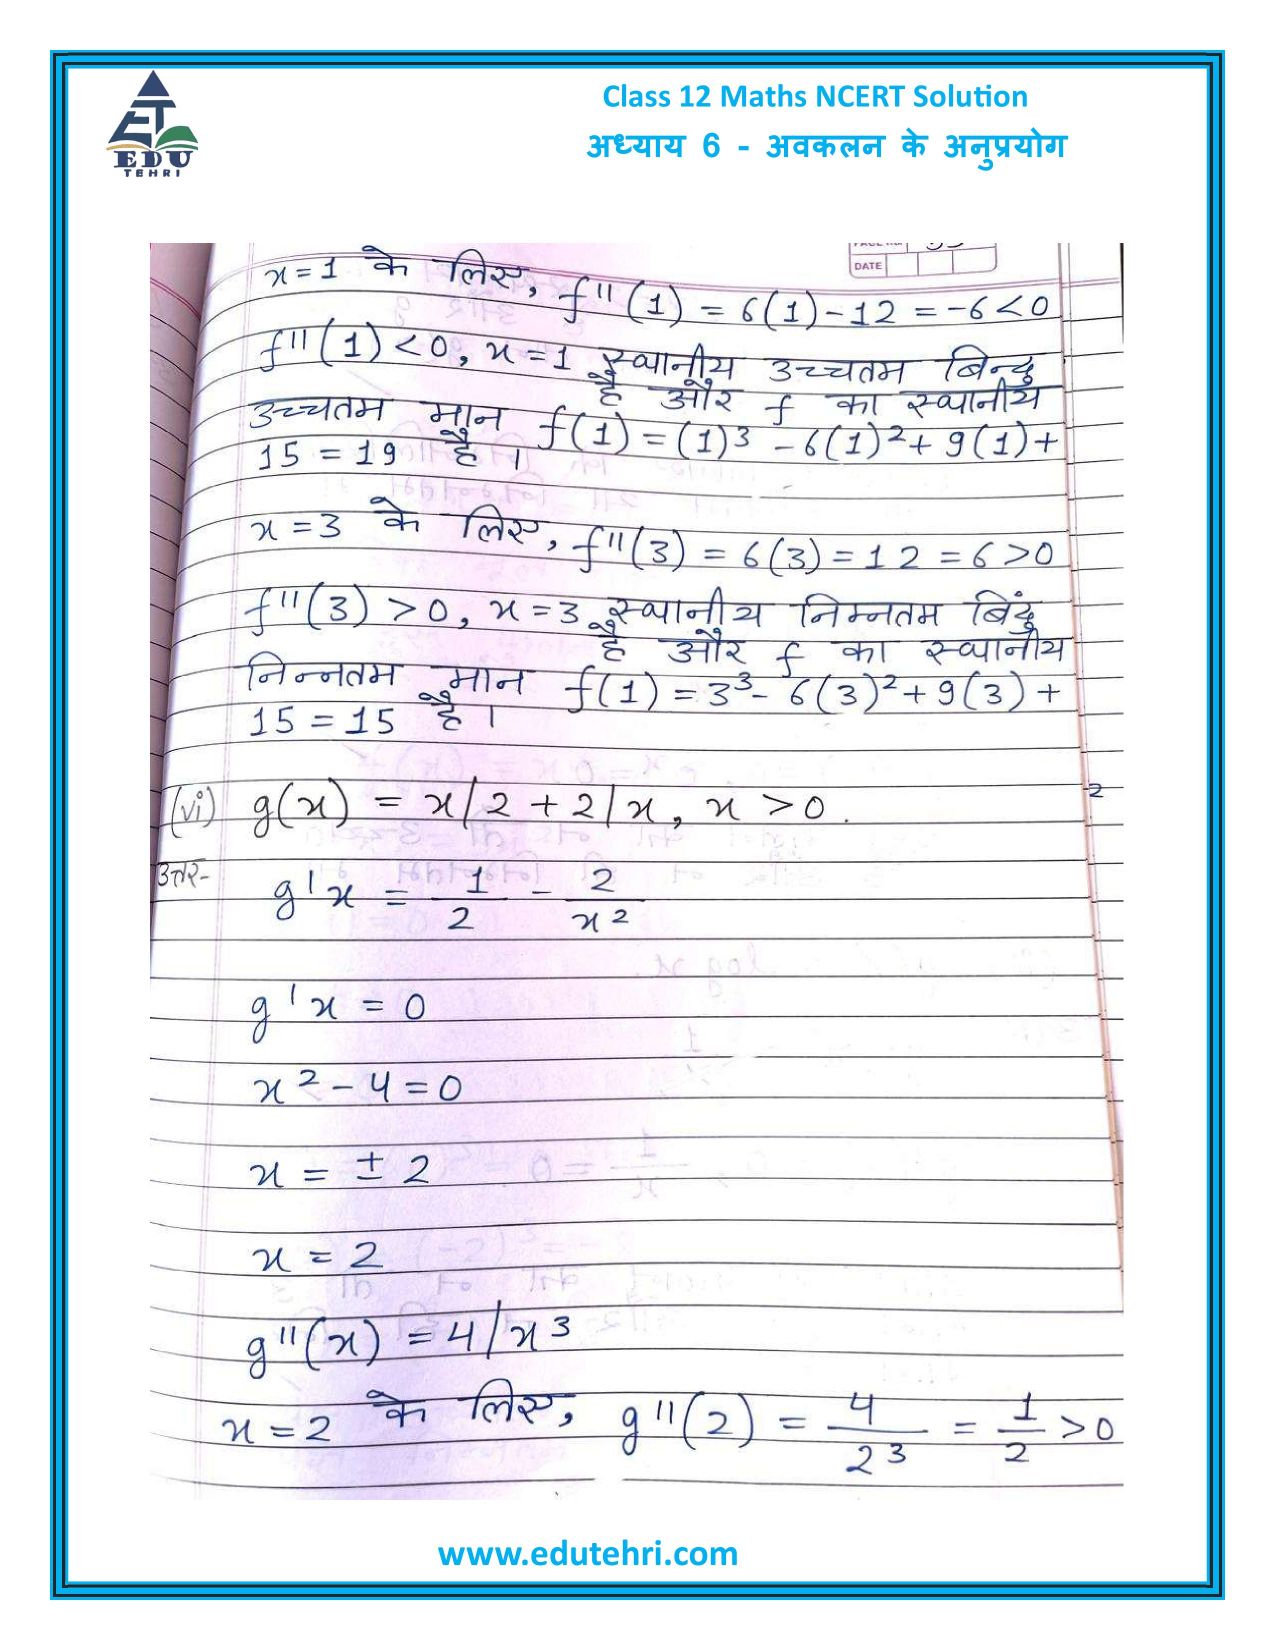 Class 12 Maths NCERT Solution
अध्याय 6 - अवकलन के अनुप्रयोग
ET
EDU
TEHRI
DATE
x=1 के लिए, f''(1) = 6(1)-12 = -6<0
f''(1)<0, x=1 स्थानीय उच्चतम बिन्दु
है और f का स्थानीय
उच्चतम मान f(1) = (1)³ - 6(1)² + 9(1) +
15 = 19 है ।
x=3 के लिए, f''(3) = 6(3) = 12 = 6>0
f''(3) >0, x=3 स्थानीय निम्नतम बिंदु
है और f का स्थानीय
निन्नतम मान f(1) = 3³ - 6(3)² + 9(3) +
15 = 15 है ।
(vi) g(x) = x/2 + 2/x, x > 0.
2
उत्तर- g'x = 1/2 - 2/x²
g'x = 0
x² - 4 = 0
x = ± 2
x = 2
g''(x) = 4/x³
x=2 के लिए, g''(2) = 4/2³ = 1/2 >0
www.edutehri.com